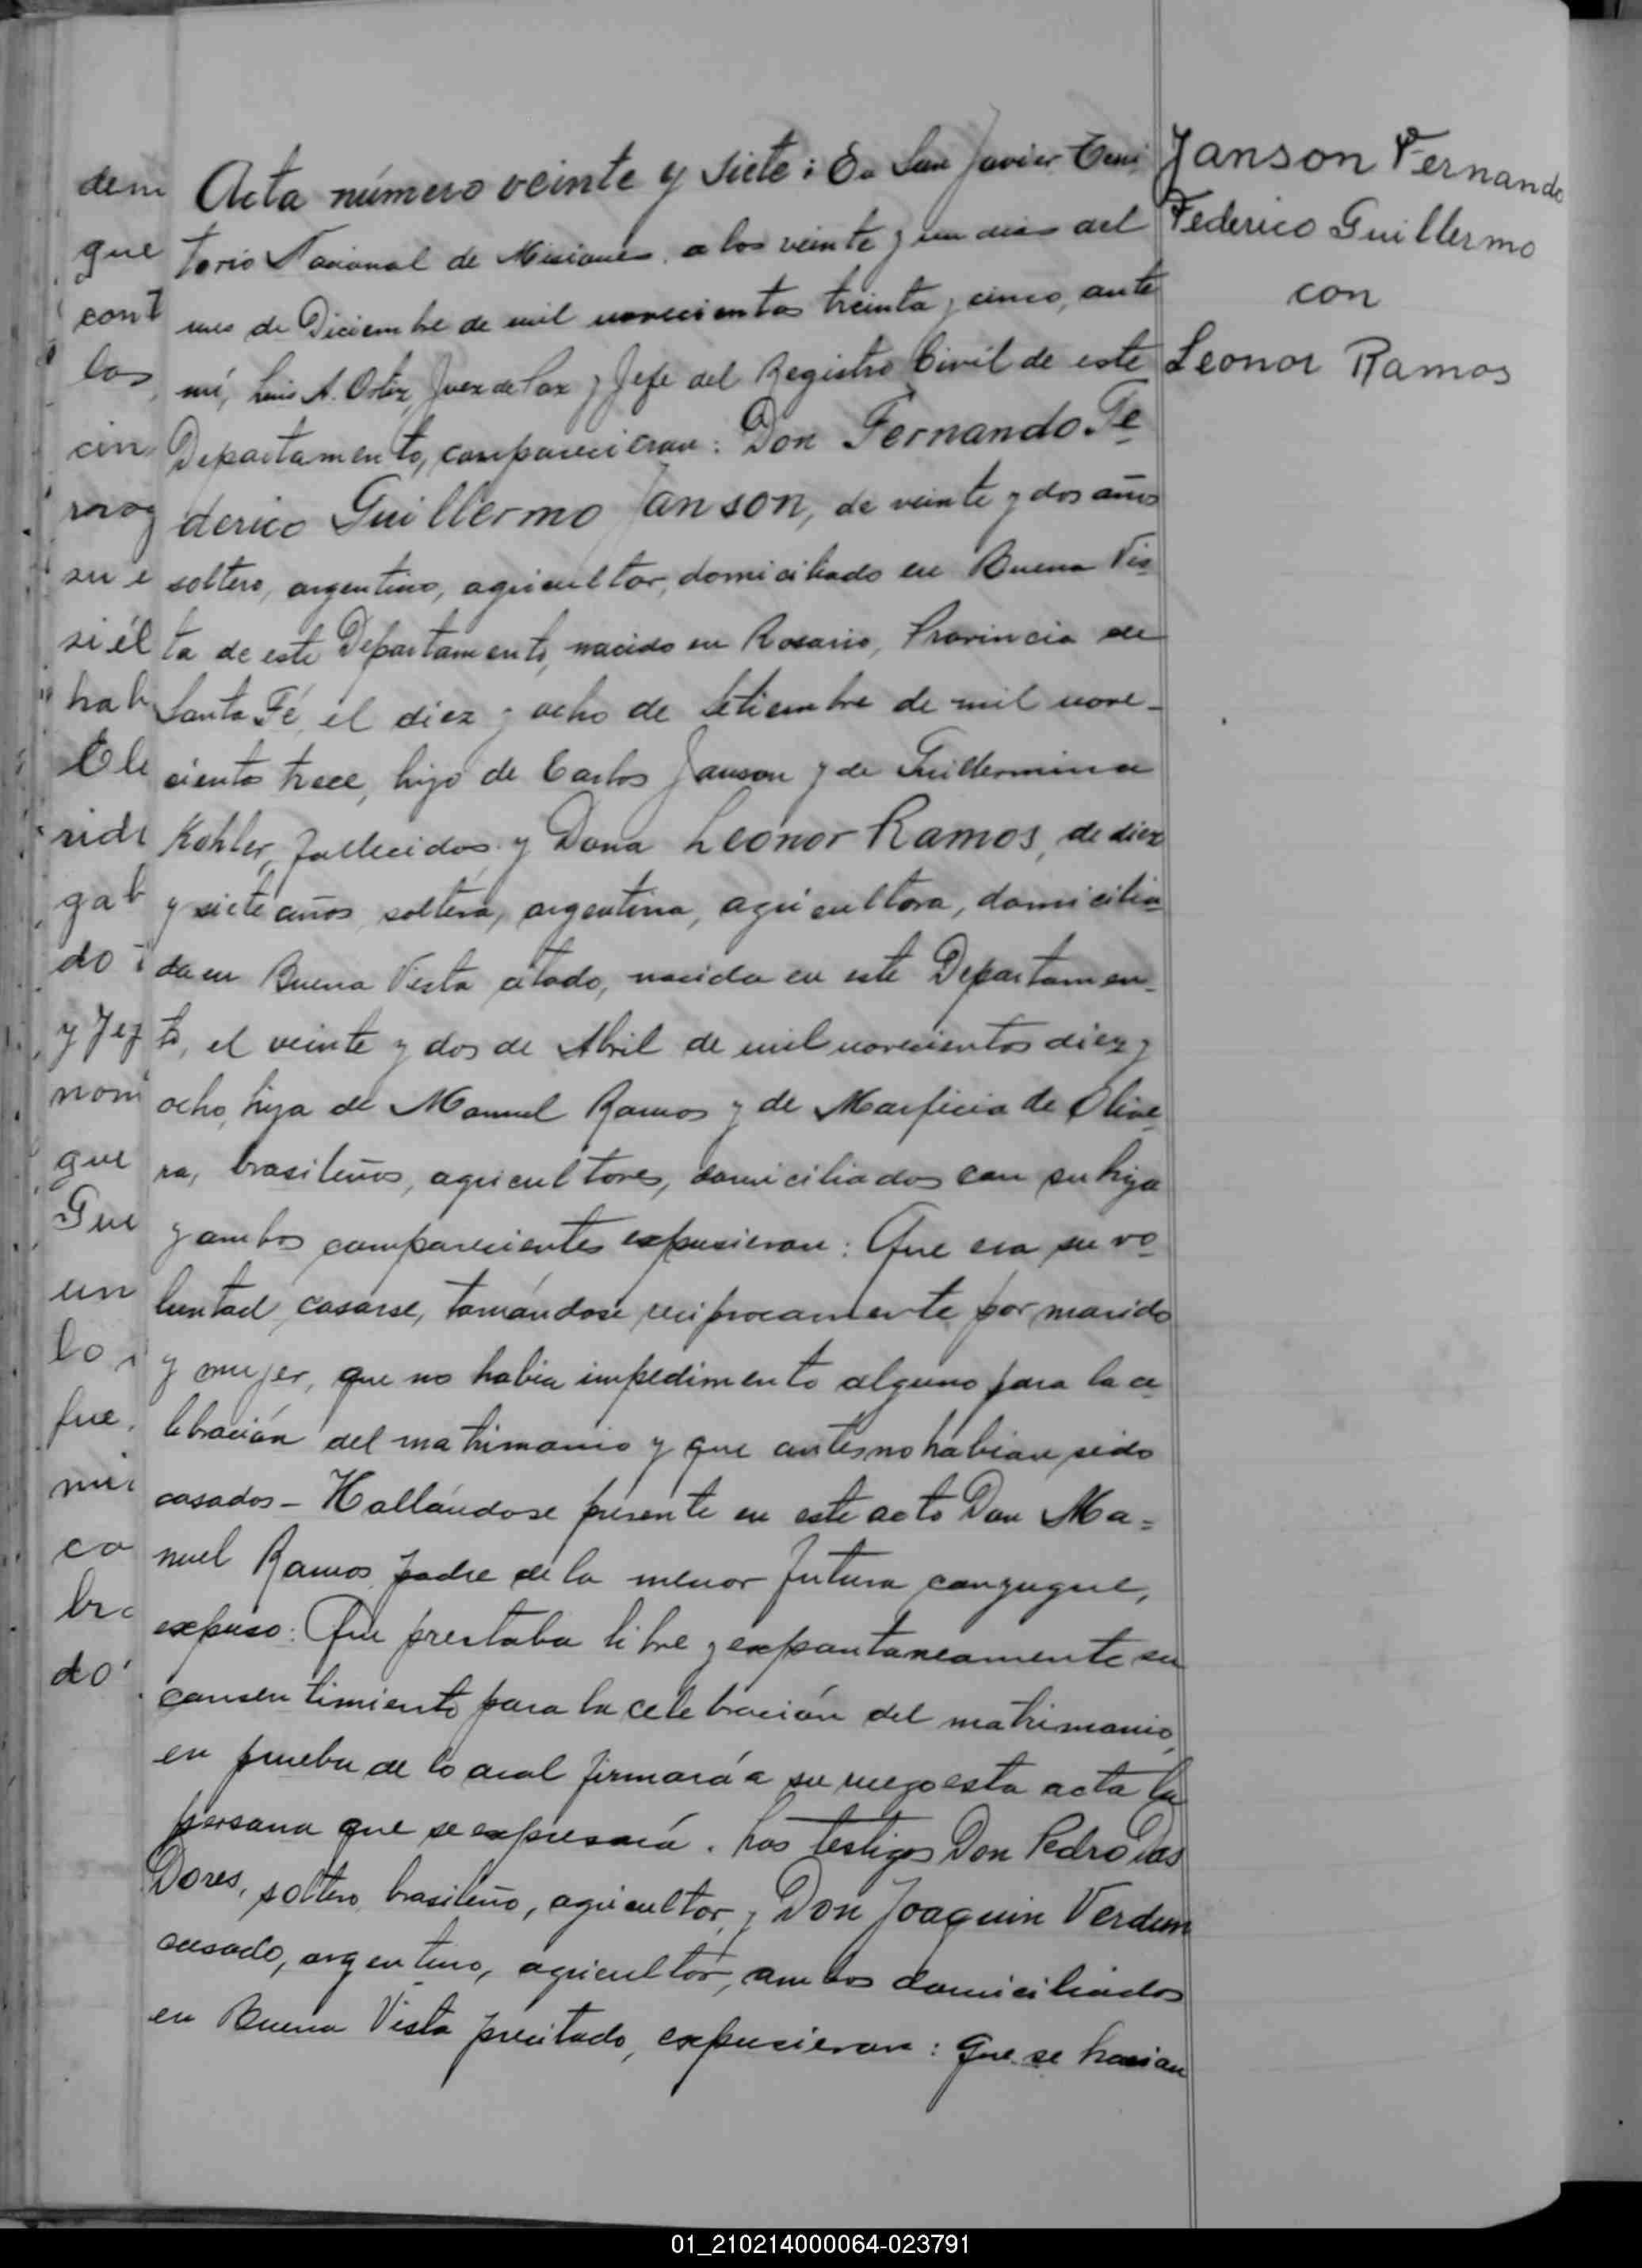 Janson Fernando
Federico Guillermo
con
Leonor Ramos
Acta número veinte y siete: En San Javier Terri
torio Nacional de Misiones, a los veinte y un dias del
mes de Diciembre de mil novecientos treinta y cinco, ante
mí, Luis A. Ortiz, Juez de Paz y Jefe del Registro Civil de este
Departamento, comparecieron: Don Fernando Fe
derico Guillermo Janson, de veinte y dos años
soltero, argentino, agricultor, domiciliado en Buena Vis
ta de este Departamento, nacido en Rosario, Provincia de
Santa Fé, el diez y ocho de Setiembre de mil nove-
cientos trece, hijo de Carlos Janson y de Guillermina
Kohler, fallecidos y Doña Leonor Ramos, de diez
y siete años, soltera, argentina, agricultora, domicilia
da en Buena Vista citado, nacida en este Departamen-
to, el veinte y dos de Abril de mil novecientos diez y
ocho, hija de Manuel Ramos y de de Olivei
ra, brasileños, agricultores, domiciliados con su hija
y ambos comparecientes expusieron: Que era su vo
luntad casarse, tomándose reciprocamente por marido
y mujer, que no habia impedimento alguno para la ce
lebración del matrimonio y que antes no habian sido
casados - Hallándose presente en este acto Don Ma=
nuel Ramos padre de la menor futura conyugue,
expuso: Que prestaba libre y expontaneamente su
consentimiento para la celebración del matrimonio,
en prueba de lo cual firmará a su ruego esta acta la
persona que se expresará. Los testigos Don Pedro das
Dores, soltero, brasileño, agricultor, y Don Joaquin Verdun
casado, argentino, agricultor, ambos domiciliados
en Buena Vista precitado, expusieron: Que se hacian
dem
que
cont
los
cin
su e
si él
hab
Ele
ride
gab
do
y Jef
nom
que
Gui
un
lo
fue
mi
co
bra
do
01_210214000064-023791